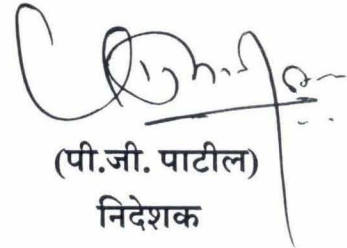 (पी.जी. पाटील)
निदेशक